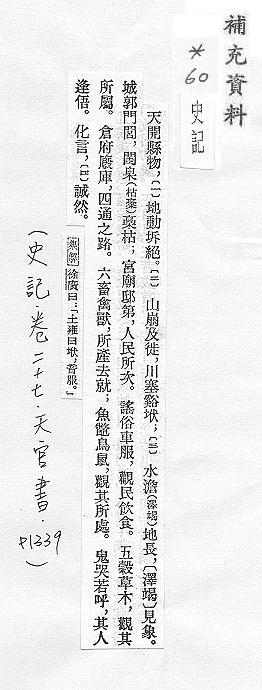 補充資料
*60
史記
天開縣物,〔一〕地動坼絕。〔二〕山崩及徙,川塞谿垘;〔三〕水澹(澤竭)地長,〔澤竭〕見象。
城郭門閭,閨臬(枯槁)槀枯;宮廟邸第,人民所次。謠俗車服,觀民飲食。五穀草木,觀其
所屬。倉府廄庫,四通之路。六畜禽獸,所產去就;魚鱉鳥鼠,觀其所處。鬼哭若呼,其人
逢俉。化言,〔四〕誠然。
集解 徐廣曰:「土雍曰垘,音服。」
(史記·卷二十七·天官書·P1339)